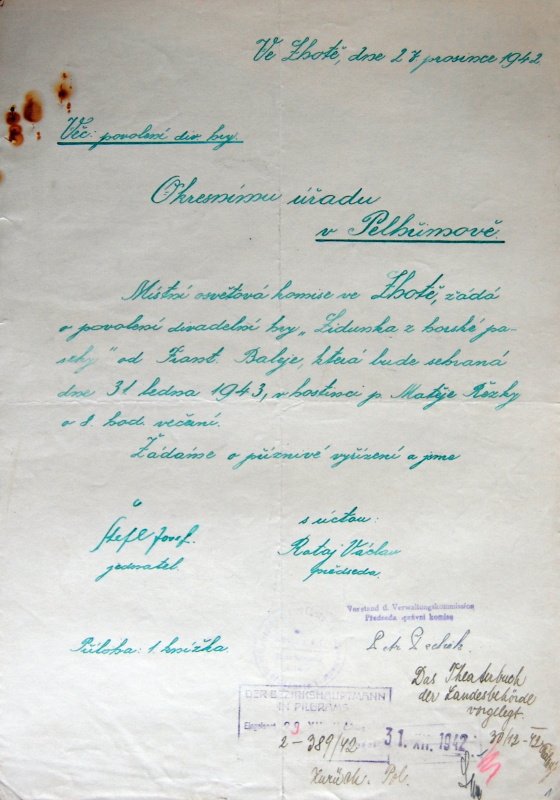 Ve Lhotě, dne 27 prosince 1942
Věc: povolení div hry
Okresnímu úřadu
v Pelhřimově.
Místní osvětová komise ve Lhotě, žádá
o povolení divadelní hry „Lidunka z horské pa-
seky" od Frant. Baleje, která bude sehraná
dne 31 ledna 1943, v hostinci p. Matěje Řezky
o 8. hod. večerní.
Žádáme o příznivé vyřízení a jsme
s úctou:
Štefl Josef. Rataj Václav
jednatel. předseda.
Vorstand d. Verwaltungskommission
Předseda správní komise
Příloha: 1. knížka.
Petr
Das Theaterbuch
der Landesbehörde
vorgelegt.
30/12-42
DER BEZIRKSHAUPTMANN
IN PILGRAMS
Eingelangt
2-389/42
31. XII. 1942